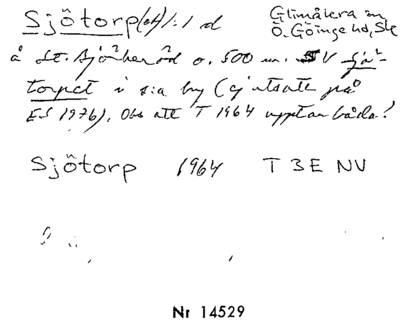 Sjötorp(et) 1:1 d
Glimåkra sn
Ö. Göinge hd, Sk
å St. Sjöberöd o. 500 m. SV Sjö-
torpet i s:a by (ej utsatt på
ES 1976). Obs att T 1964 upptar båda!
Sjötorp 1964 T 3E NV
Nr 14529